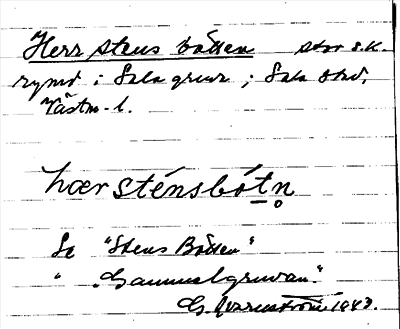 Herr stens botten stor s.k.
rymd i Sala gruva ; Sala stad,
Västm. l.
hær sténsbótn̥
Se "Stens Botten"
" "Gammelgruvan".
G. Warnström 1943.